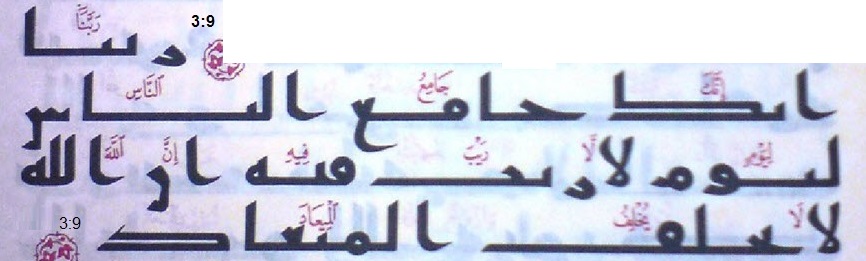 3:9 رَبَّنَآ
ربنا
إِنَّكَ جَامِعُ ٱلنَّاسِ
انك جامع الناس
لِيَوْمٍ لَّا رَيْبَ فِيهِ إِنَّ ٱللَّهَ
ليوم لا ريب فيه ان الله
لَا يُخْلِفُ ٱلْمِيعَادَ 3:9
لا يخلف الميعاد